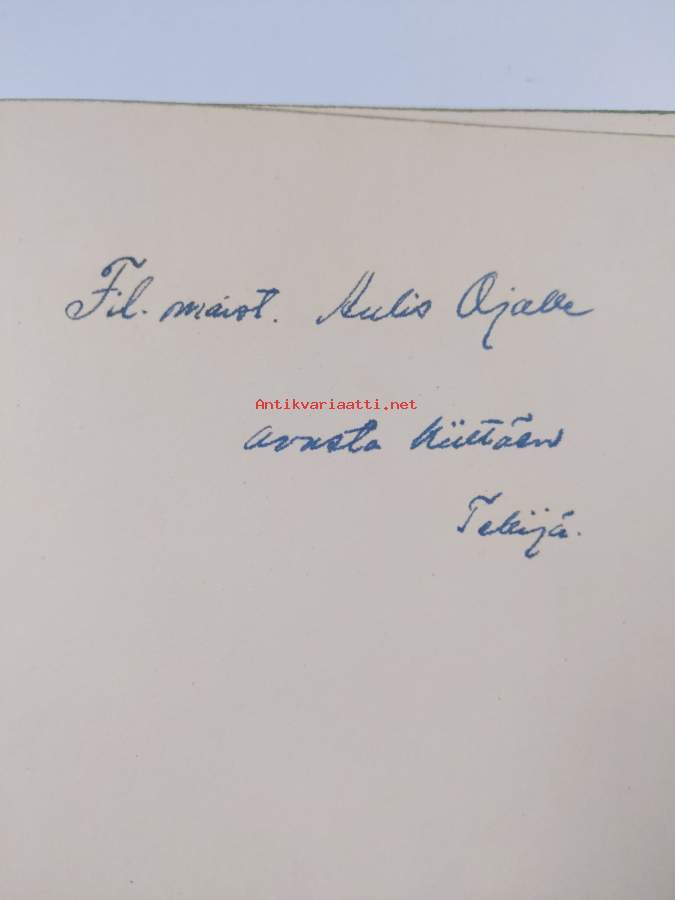 Fil. maist. Aulis Ojalle
Antikvariaatti.net
avusta kiittäen
Tekijä.